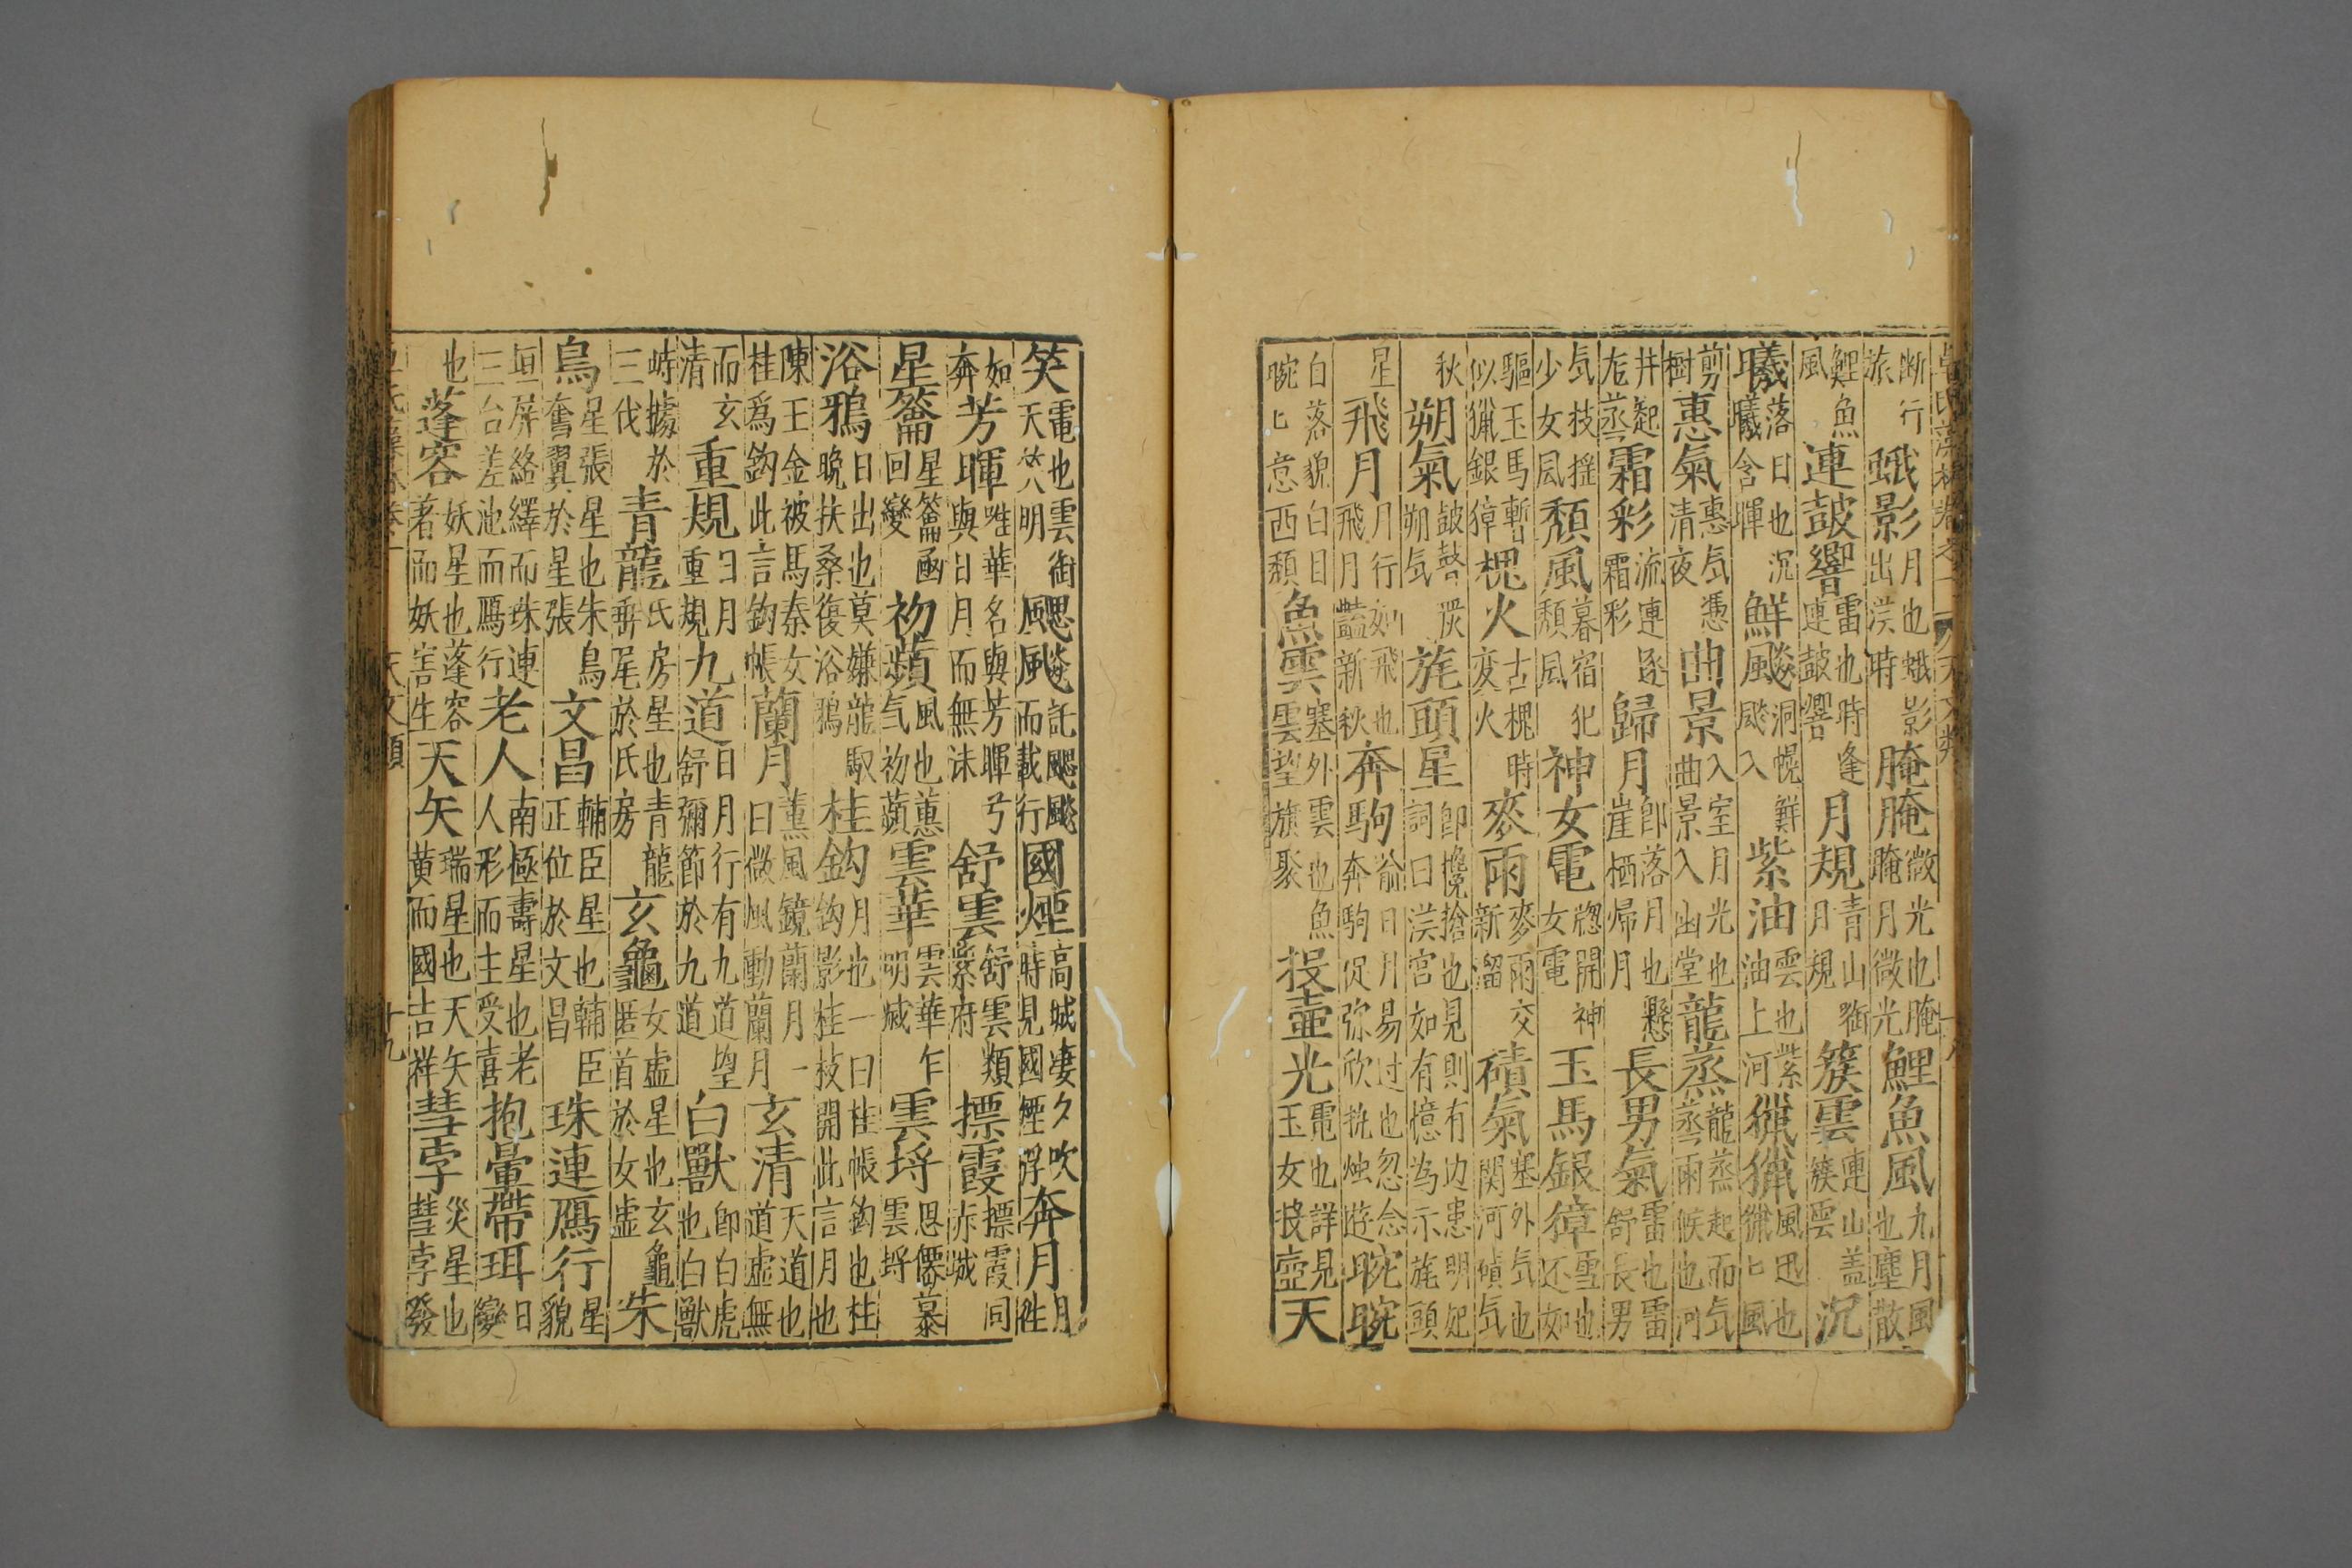 断行旅蛾影月也蛾影出淏時腌腌微光也腌腌月微光鯉魚風九月風也塵散
鯉魚風連鼓響雷也時逢連鼓響月規青山啣月規簇雲連山盖簇雲沉
曦落日也沉曦含暉鮮颷洞幌鮮颷入紫油雲也紫油上河獵獵風迅也獵匕風
剪樹惠氣惠气憑清夜曲景入室月光也曲景入幽堂龍蒸龍蒸起而气蒸雨候也河
井起庖蒸霜彩流連逐霜彩歸月即落月也懸崖栖帰月長男氣雷也雷舒長男
气技摇少女風頹風暮宿犯頹風神女電窓開神女電玉馬銀獐雪也还如
驅玉馬暫似獵銀獐槐火古槐時変火麥雨麥雨交新溜磧氣塞外气也関河磧气
秋朔氣鼓聲炭朔气旄頭星即攙搶也見則有边患明妃詞曰淏宫如有憶為示旄頭
星飛月月行如飛也飛月豔新秋奔駒喻日月易过也忽念奔駒促弥欣執烛遊晼晼
白落貌白日晼匕忽西頹魚雲塞外雲也魚雲望旗聚投壺光電也詳見玉女投壺天
笑電也雲衘天笑明颸颷託颸颷風而載行國煙高城凄夕吹時見國煙浮奔月月徃
如奔芳暉唯華名與芳暉兮與日月而無沬舒雲舒雲類紫府摽霞摽霞同赤城
星籥星籥函回變初蘋風也蕙气初蘋雲華雲華乍明滅雲埒思僊慕雲埒
浴鴉日出也莫嫌龍馭晚扶桑復浴鴉桂鈎月也一曰桂帳鈎也桂鈎影桂枝開此言月也
陳王金被馬秦女桂爲鈎此言鈎帳蘭月薰風鏡蘭月一曰微風動蘭月玄清天道也道虚無
而玄清重規日月重規九道日月行有九道望舒彌節於九道白獸即白虎也白獸
峙據於三伐青龍氐房星也青龍垂尾於氐房玄龜女虚星也玄龜匿首於女虚朱
鳥星張星也朱鳥奮翼於星張文昌輔臣星也輔臣正位於文昌珠連鴈行星貌
垣屏絡繹而珠連三台差池而鴈行老人南極壽星也老人形而主受喜抱暈帶珥日變
也蓬容妖星也蓬容著而妖害生天矢瑞星也天矢黄而國吉祥彗孛災星也彗孛發
天文類 十九